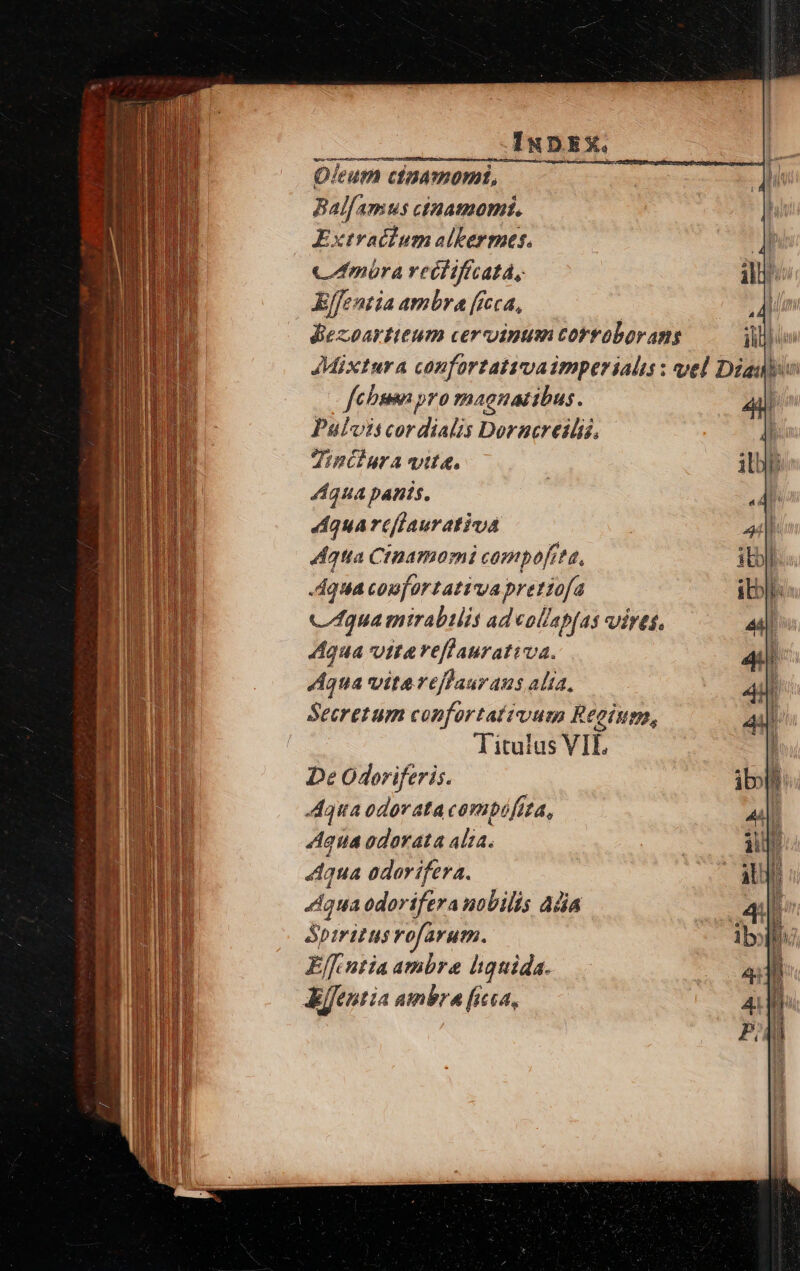 INDEX.
Oleum cinamomi, 4
Balſamus cinamomi.
Extractum alkermes. 4
Ambra rectificata, ib
Eſſentia ambræ ſicca, 4
Bezoarticum cervinum corroborans ib
Mixtura confortativa imperialis: vel Diau
ſchum pro magnatibus. 4
Pulvis cordialis Dorncreilii. 4
Tinctura vitæ. ib
Aqua panis. 4
Aqua reſtaurativa 4
Aqua Cinamomi compoſita, ib
Aqua confortativa pretioſa ib
Aqua mirabilis ad collapſas vires. 4
Aqua vitæ reſtaurativa. 4
Aqua vitæ reſtaurans alia. 4
Secretum confortativum Regium, 4
Titulus VII.
De Odoriferis. ib
Aqua odorata compoſita, 4
Aqua odorata alia. ib
Aqua odorifera. ib
Aqua odorifera nobilis alia 4
Spiritus roſarum. ib
Eſſentia ambræ liquida. 4
Eſſentia ambræ ſicca, 4
P